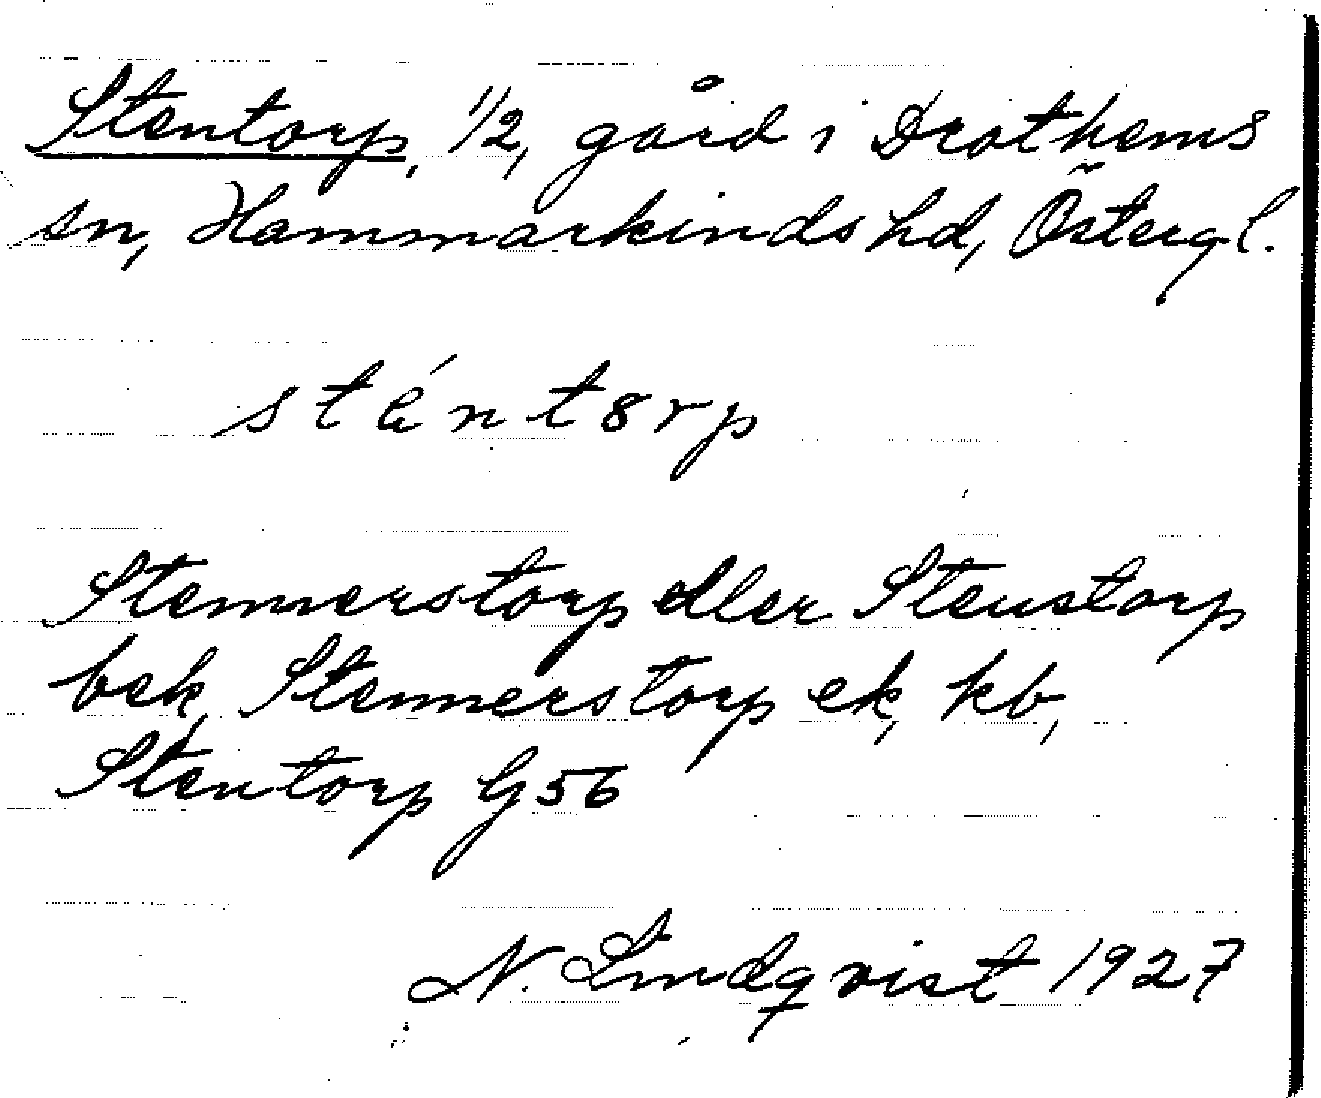 Stentorp, 1/2, gård i Drothems
sn, Hammarkinds hd, Östergl.
sténtorp
Stennerstorp eller Stenstorp
bek, Stennerstorp ek, kb,
Stentorp G56
N. Lindqvist 1927